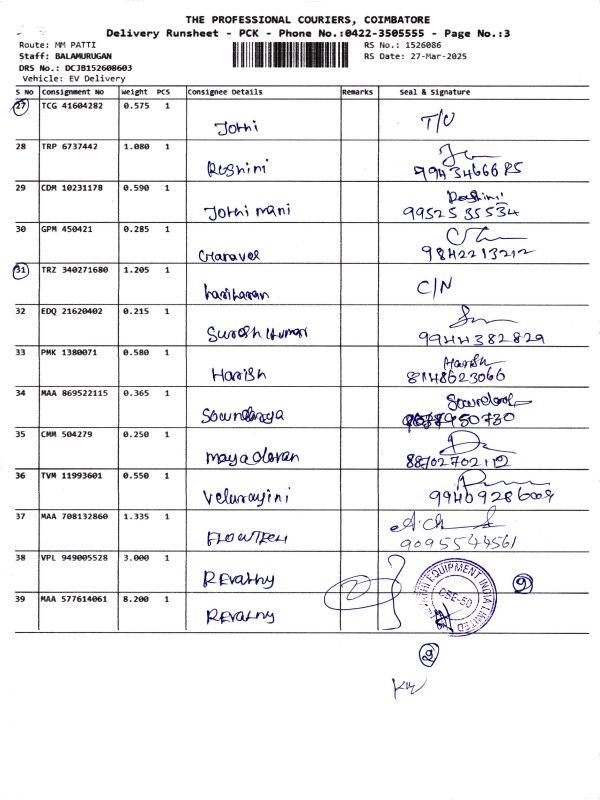 THE PROFESSIONAL COURIERS, COIMBATORE
Delivery Runsheet - PCK - Phone No.:0422-3505555 - Page No.:3
Route: MM PATTI RS No.: 1526086
Staff: BALAMURUGAN RS Date: 27-Mar-2025
DRS No.: DCJB152608603
Vehicle: EV Delivery
S No Consignment No Weight PCS Consignee Details Remarks Seal & Signature
27 TCG 41604282 0.575 1 Jothi T/U
28 TRP 6737442 1.080 1 Roshini 9943466685
29 CDM 10231178 0.590 1 Jothi mani Roshini 9952535534
30 GPM 450421 0.285 1 9842213212
31 TRZ 340271680 1.205 1 hariharan C/N
32 EDQ 21620402 0.215 1 Suresh Kumar 9944382829
33 PMK 1380071 0.580 1 Harish Harish 8148623066
34 MAA 869522115 0.365 1 Soundarya
35 CMM 504279 0.250 1
36 TVM 11993601 0.550 1 Velurayini
37 MAA 708132860 1.335 1 FLOWTECH
38 VPL 949005528 3.000 1 REvathy
39 MAA 577614061 8.200 1 REvathy
EQUIPMENT INDIA LIMITED
CBE-50
9
2